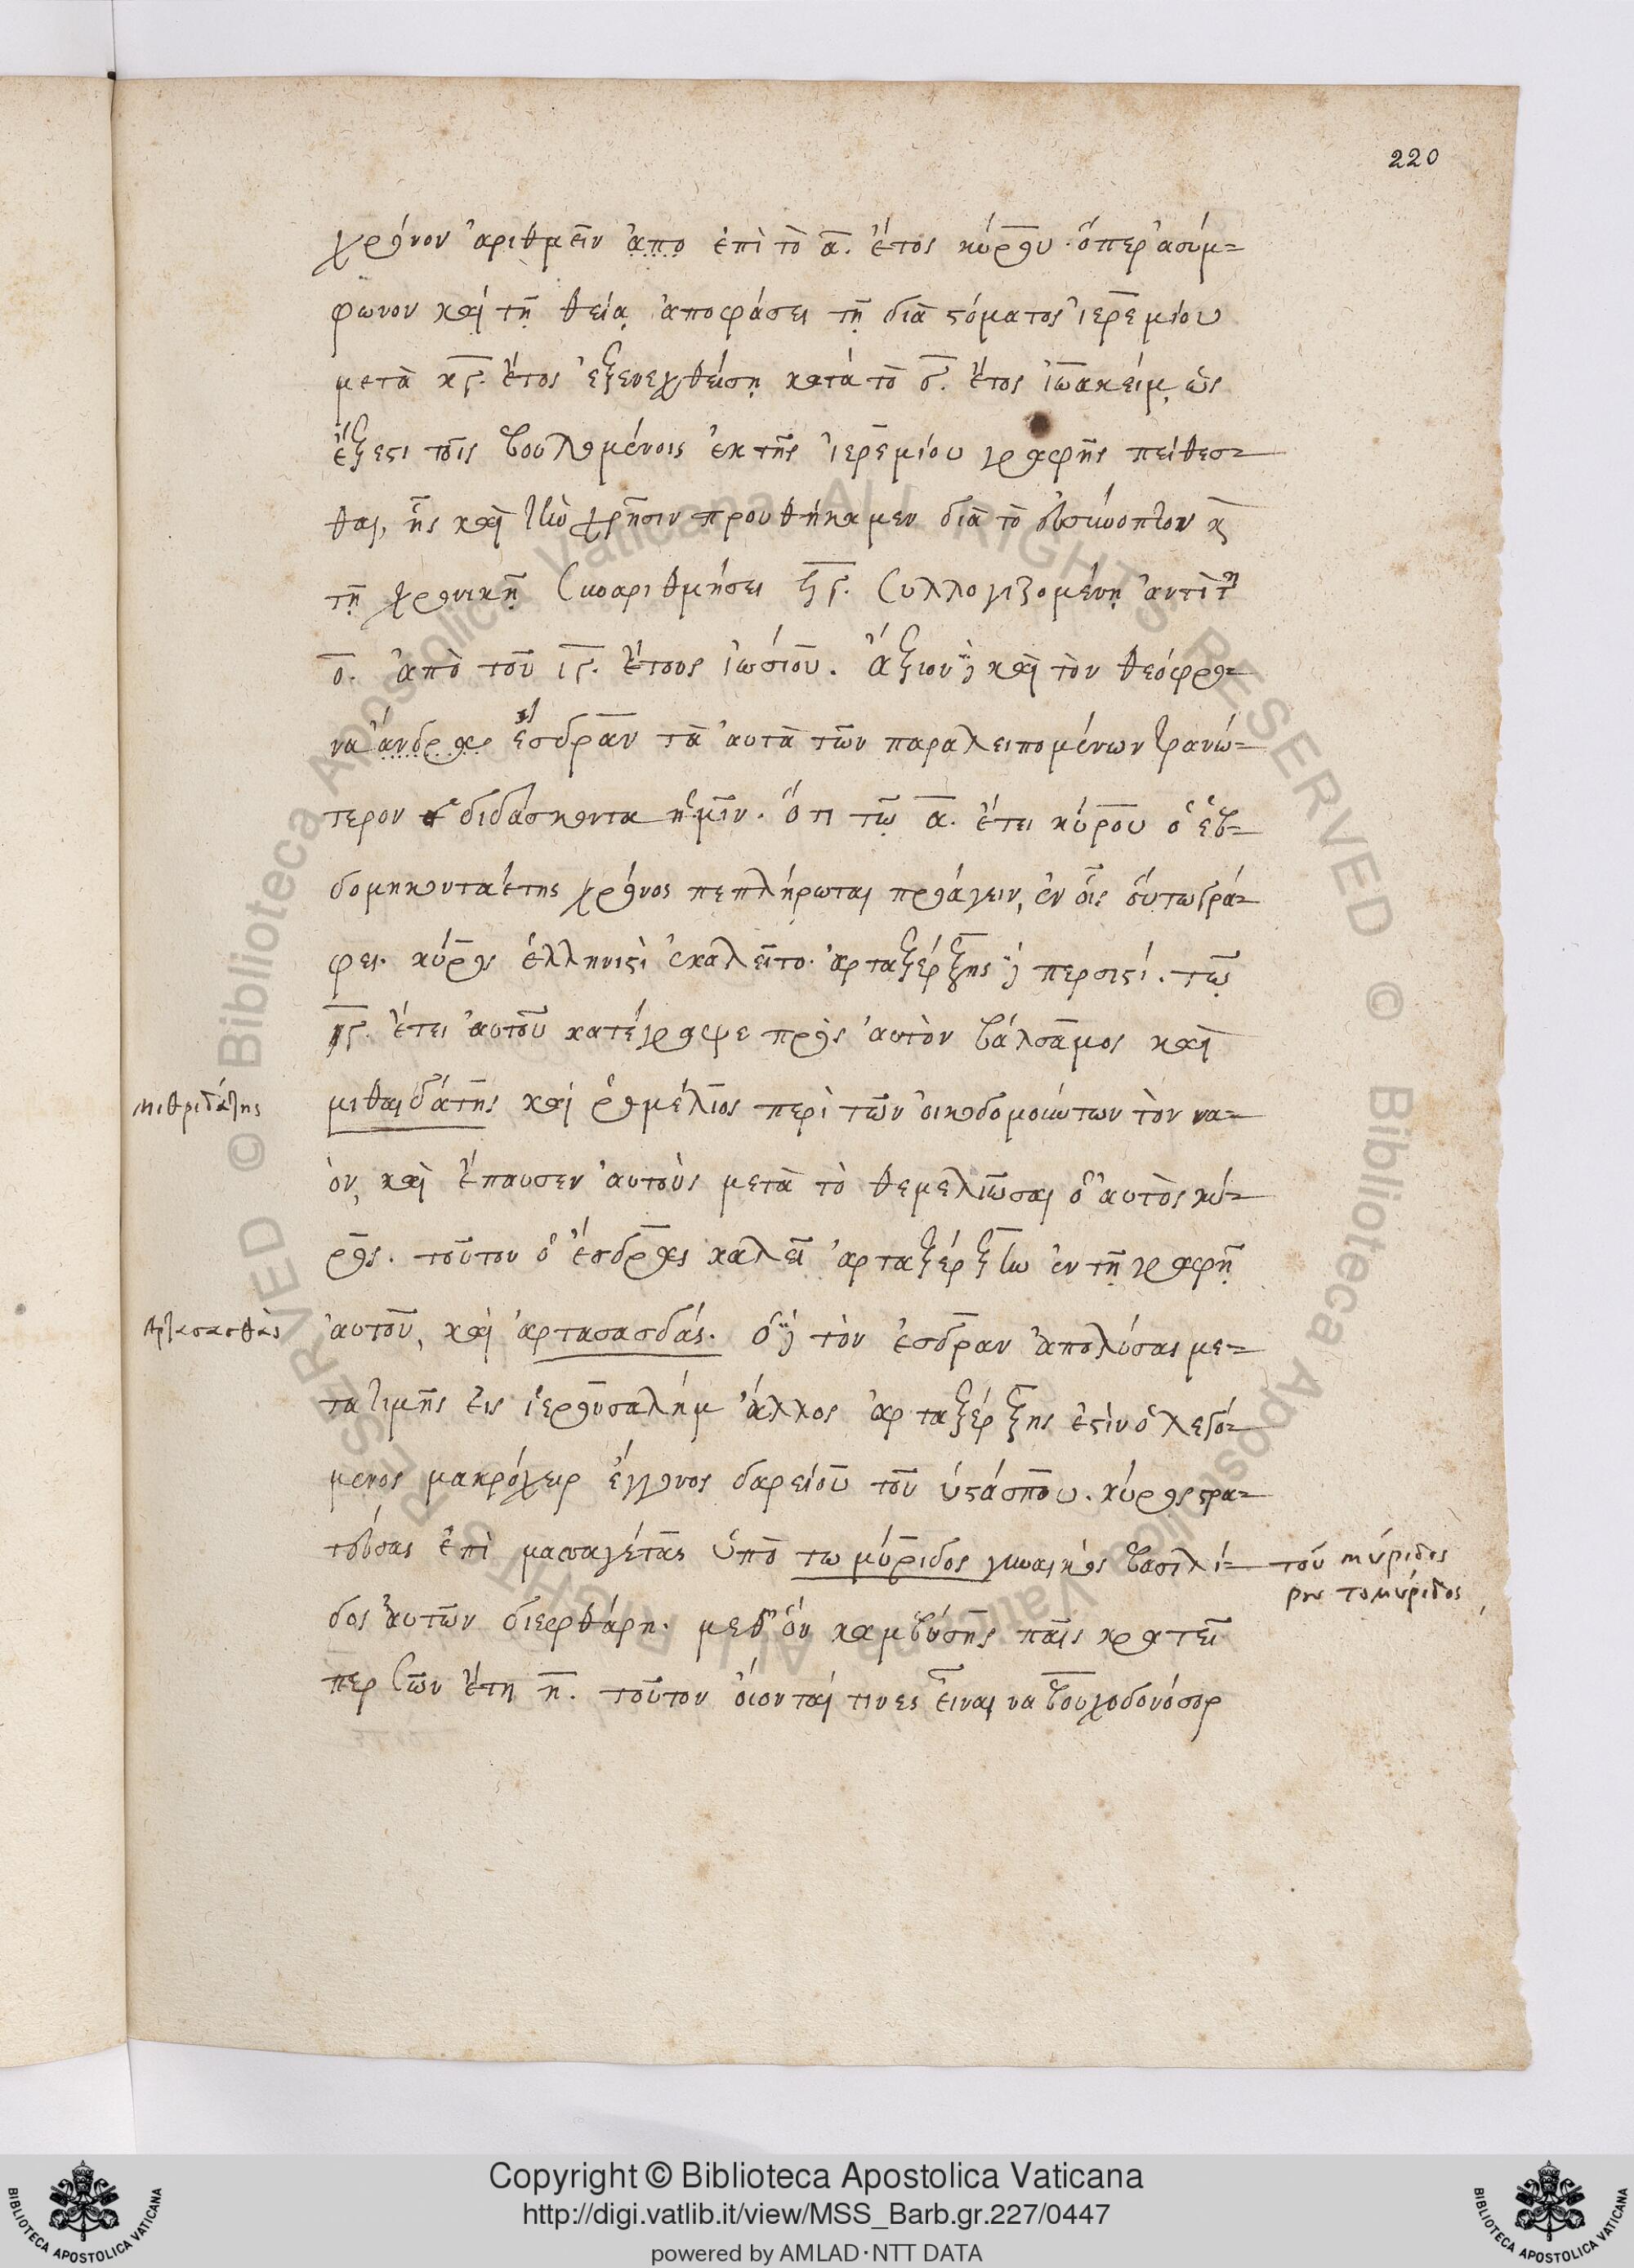 220
χρόνον ἀριθμεῖν ἀπο ἐπὶ τὸ α. ἔτος κύρου. ὅπερ ἀσύμ=
φωνον καὶ τῇ θείᾳ ἀποφάσει τῇ διὰ στόματος ἱερεμίου
μετὰ κγ. ἔτος ἐξενεχθείσῃ κατὰ τὸ δ. ἔτος ἰωακείμ, ὡς
ἔξεστι τοῖς βουλομένοις ἐκ τῆς ἱερεμίου γραφῆς πείθεσ=
θαι, ἧς καὶ τὴν χρῆσιν προυθήκαμεν διὰ τὸ εὐσύνοπτον κ
τῇ χρονικῇ συναριθμήσει ξγ. συλλογιζομένῃ ἀντὶ τ
ο. ἀπὸ τοῦ ιγ. ἔτους ἰωσίου. ἄξιον δὲ καὶ τὸν θεόφρο=
να ἄνδραρ ἔσδραν τὰ αὐτὰ τῶν παραλειπομένων τρανώ=
τερον διδάσκοντα ἡμῖν. ὅτι τῷ α. ἔτει κύρου ὁ ἑβ=
δομηκονταέτης χρόνος πεπλήρωται προάγειν, ἐν οἷς οὕτω γρά=
φει. κύρος ἑλληνιστὶ ἐκαλεῖτο. ἀρταξέρξης δὲ περσιστί. τῷ
γ. ἔτει αὐτοῦ κατέγραψε πρὸς αὐτὸν βάλσαμος καὶ
μιθαιδάτης καὶ ῥομέλιος περὶ τῶν οἰκοδομούντων τὸν να=
μιθριδάτης
ὸν, καὶ ἔπαυσεν αὐτοὺς μετὰ τὸ θεμελιῶσαι ὁ αὐτὸς κύ=
ρος. τοῦτον ὁ ἔσδρας καλεῖ ἀρταξέρξην ἐν τῇ γραφῇ
αὐτοῦ, καὶ ἀρτασασδάς. ὁ δὲ τὸν ἔσδραν ἀπολύσας με=
Ἀρτασασθὰς
τα τιμῆς εἰς ἱερουσαλήμ ἄλλος ἀρταξέρξης ἐστὶν ὁ λεγό=
μενος μακρόχειρ ἔγγονος δαρείου τοῦ ὑστάσπου. κύρος στρα=
τεύσας ἐπὶ μασαγέτας ὑπὸ τω μύριδος γυναικὸς βασιλί=
τοῦ μύριδος
τομύριδος
δος αὐτῶν διεφθάρη. μεθ' ὃν καμβύσης παῖς κρατεῖ
περσῶν ἔτη η. τοῦτον οἴονταί τινες εἶναι ναβουχοδονόσορ
Copyright © Biblioteca Apostolica Vaticana
http://digi.vatlib.it/view/MSS_Barb.gr.227/0447
powered by AMLAD·NTT DATA